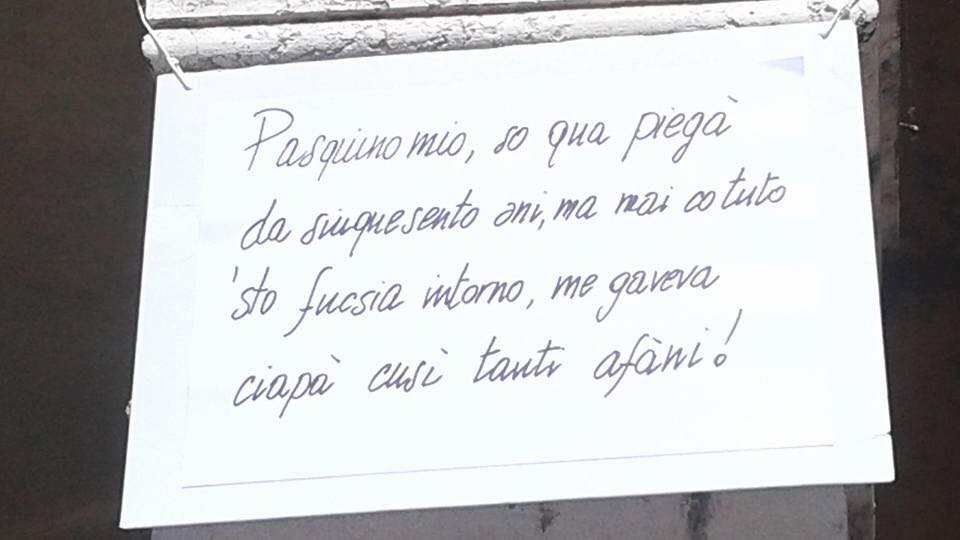 Pasquino mio, so qua piegà
da sinquesento ani, ma mai co tuto
'sto fucsia intorno, me gaveva
ciapà cusì tanti afàni!